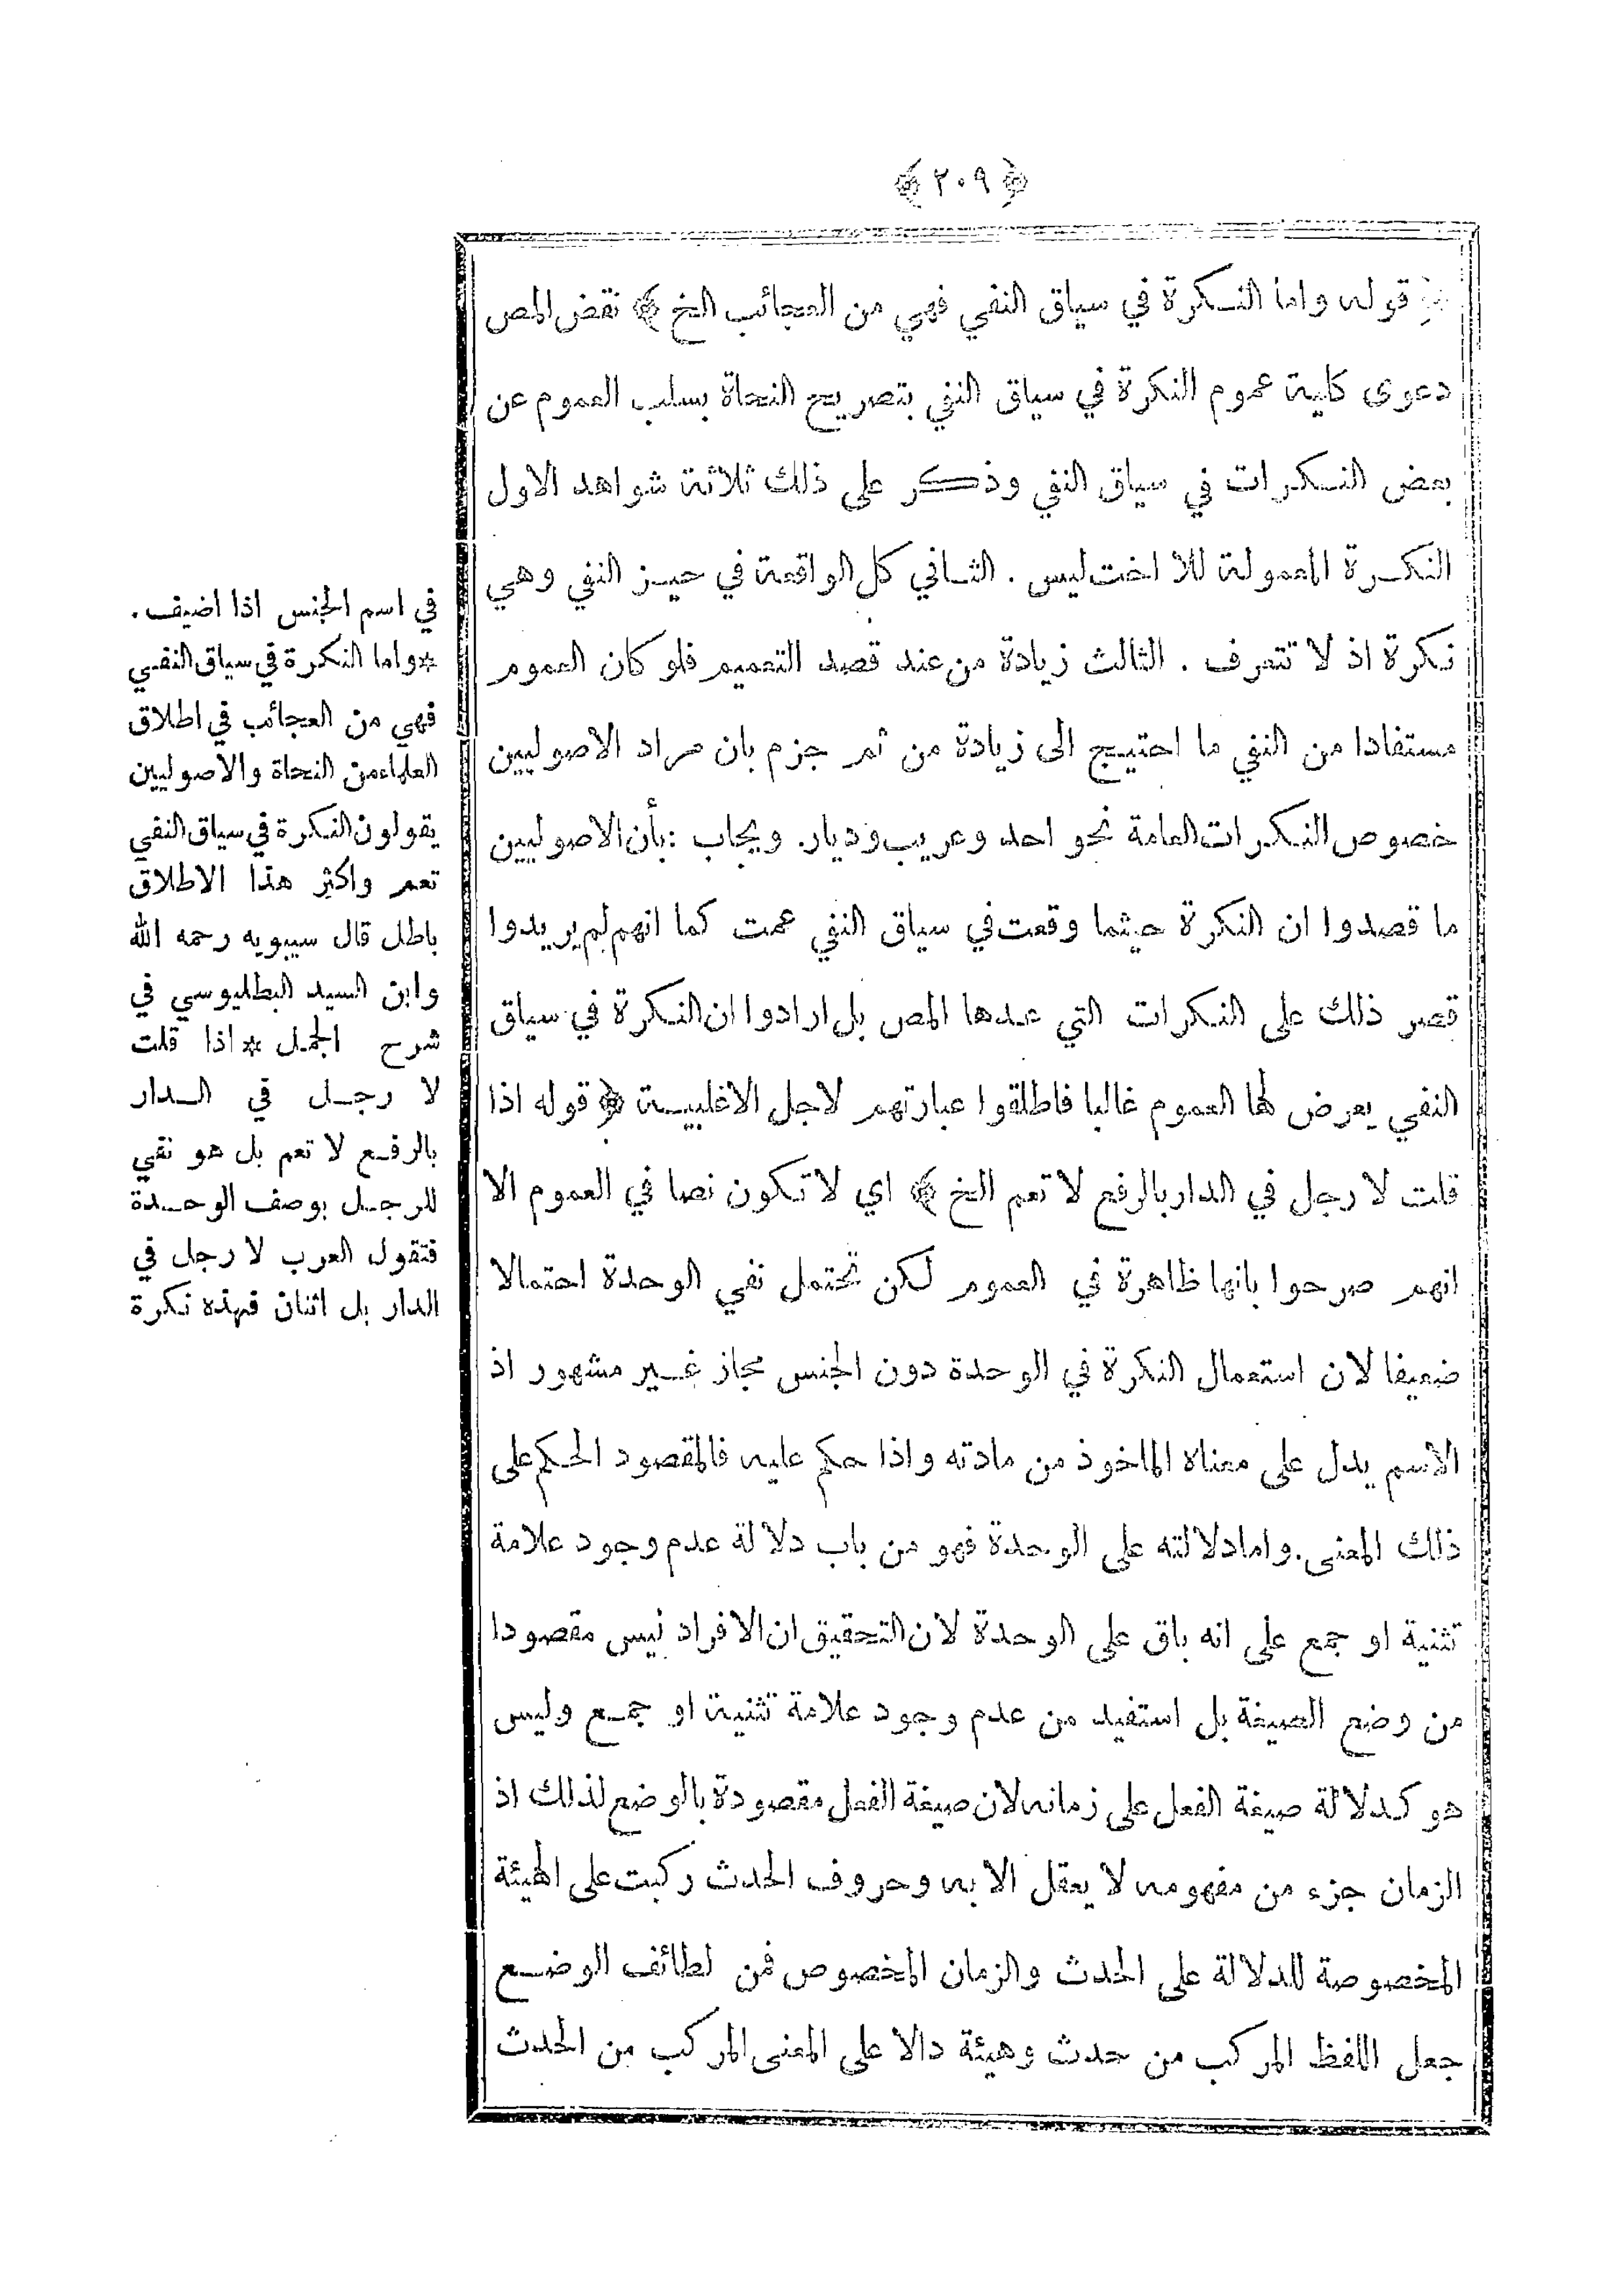 ﴿ ٢٠٩ ﴾
﴿ قوله واما النكرة في سياق النفي فهي من العجائب الخ ﴾ نقض المص
دعوى كلية عموم النكرة في سياق النفي بتصريح النحاة بسلب العموم عن
بعض النكرات في سياق النفي وذكر على ذلك ثلاثة شواهد الاول
النكرة المعمولة للا اخت ليس . الثاني كل الواقعة في حيز النفي وهي
نكرة اذ لا تتعرف . الثالث زيادة من عند قصد التعميم فلو كان العموم
مستفادا من النفي ما احتيج الى زيادة من ثم جزم بان مراد الاصوليين
خصوص النكرات العامة نحو احد وعريب وديار. ويجاب : بأن الاصوليين
ما قصدوا ان النكرة حيثما وقعت في سياق النفي عمت كما انهم لم يريدوا
قصر ذلك على النكرات التي عدها المص بل ارادوا ان النكرة في سياق
النفي يعرض لها العموم غالبا فاطلقوا عبارتهم لاجل الاغلبية ﴿ قوله اذا
قلت لا رجل في الدار بالرفع لا تعم الخ ﴾ اي لا تكون نصا في العموم الا
انهم صرحوا بانها ظاهرة في العموم لكن تحتمل نفي الوحدة احتمالا
ضعيفا لان استعمال النكرة في الوحدة دون الجنس مجاز غير مشهور اذ
الاسم يدل على معناه الماخوذ من مادته واذا حكم عليه فالمقصود الحكم على
ذلك المعنى. واما دلالته على الوحدة فهو من باب دلالة عدم وجود علامة
تثنية او جمع على انه باق على الوحدة لان التحقيق ان الافراد ليس مقصودا
من وضع الصيغة بل استفيد من عدم وجود علامة تثنية او جمع وليس
هو كدلالة صيغة الفعل على زمانه لان صيغة الفعل مقصودة بالوضع لذلك اذ
الزمان جزء من مفهومه لا يعقل الا به وحروف الحدث ركبت على الهيئة
المخصوصة للدلالة على الحدث والزمان المخصوص فمن لطائف الوضع
جعل اللفظ المركب من حدث وهيئة دالا على المعنى المركب من الحدث
في اسم الجنس اذا اضيف .
*واما النكرة في سياق النفي
فهي من العجائب في اطلاق
العلماء من النحاة والاصوليين
يقولون النكرة في سياق النفي
تعم واكثر هذا الاطلاق
باطل قال سيبويه رحمه الله
وابن السيد البطليوسي في
شرح الجمل * اذا قلت
لا رجل في الدار
بالرفع لا تعم بل هو نفي
للرجل بوصف الوحدة
فتقول العرب لا رجل في
الدار بل اثنان فهذه نكرة